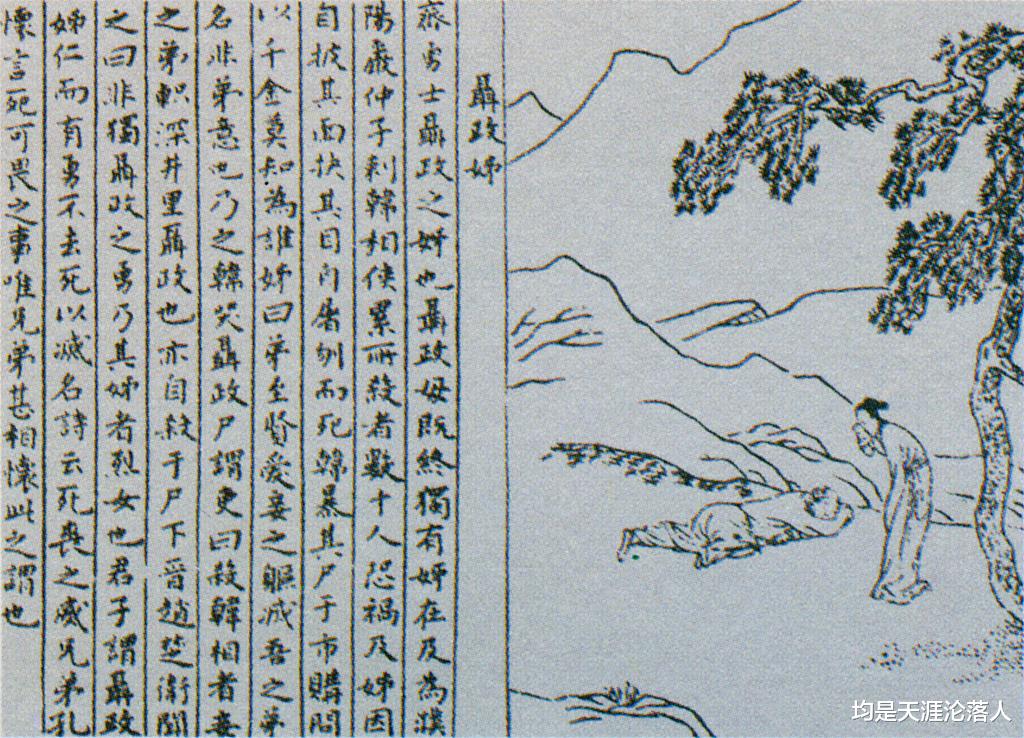 聶政姊
齊勇士聶政之姊也聶政母既終獨有姊在及為濮
陽嚴仲子刺韓相俠累所殺者數十人恐禍及姊因
自披其面抉其目自屠剔而死韓暴其尸于市購問
以千金莫知為誰姊曰弟至賢愛妾之軀滅吾之弟
名非弟意也乃之韓哭聶政尸謂吏曰殺韓相者妾
之弟軹深井里聶政也亦自殺于尸下晉趙楚衛聞
之曰非獨聶政之勇乃其姊者烈女也君子謂聶政
姊仁而有勇不去死以滅名詩云死喪之威兄弟孔
懷言死可畏之事唯兄弟甚相懷此之謂也
均是天涯沦落人